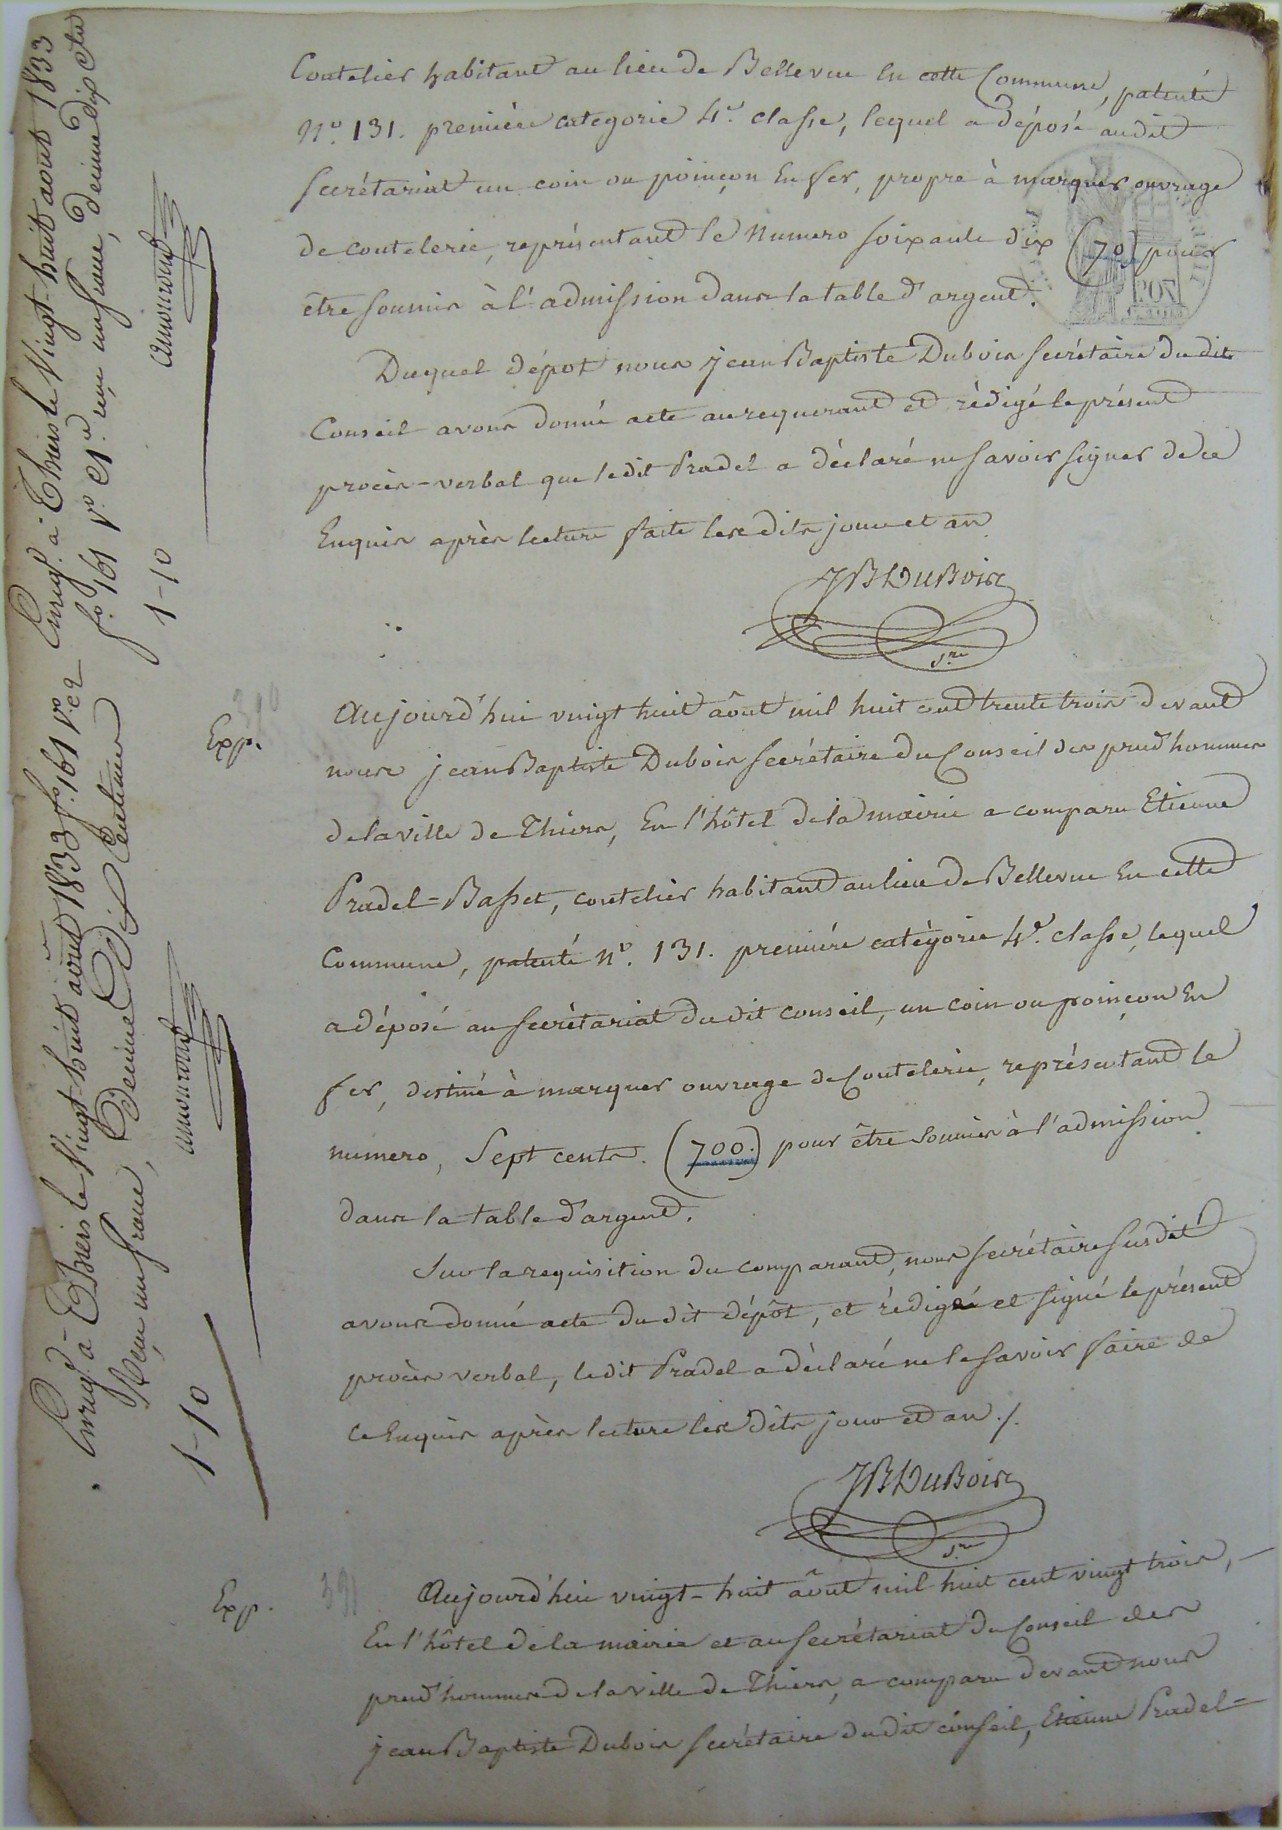 Coutelier habitant au lieu de Bellevue En cette Commune, patenté
N.o 131. premiére categorie 4.e classe, lequel a déposé audit
secrétariat un coin ou poinçon En fer, propre à marquer ouvrage
de coutelerie, représentant le Numero soixante dix (70) pour
être soumis à l'admission dans la table d'argent.
Duquel dépot nous jean Baptiste Dubois secrétaire du dit
Conseil avons donné acte au requerant et rédigé le présent
procès-verbal que le dit Pradel a déclaré ne savoir signer de ce
Enquis après lecture faite les dits jour et an
JB Dubois
s.re
Exp.
390
Aujourd'hui vingt huit août mil huit cent trente trois devant
nous jean Baptiste Dubois secrétaire du Conseil des prud'hommes
de la ville de Thiers, En l'hôtel de la mairie a comparu Etienne
Pradel=Basset, coutelier habitant au lieu de Bellevue En cette
Commune, patenté N.o 131. premiére catégorie 4.e classe, lequel
a déposé au secrétariat du dit conseil, un coin ou poinçon En
fer, destiné à marquer ouvrage de Coutelerie, représentant le
numero, Sept cents. (700.) pour être soumis à l'admission
dans la table d'argent.
Sur la requisition du comparant, nous secrétaire susdit
avons donné acte du dit dépôt, et rédigé et signé le présent
procès verbal, le dit Pradel a déclaré ne le savoir faire de
ce Enquis après lecture les dits jour et an ./.
JB Dubois
s.re
Exp.
391
Aujourd'hui vingt-huit août mil huit cent vingt trois,
En l'hôtel de la mairie et au secrétariat du Conseil des
prud'hommes de la ville de Thiers, a comparu devant nous
jean Baptiste Dubois secrétaire du dit conseil, Etienne Pradel=
Enregt. à Thiers le Vingt-huit août 1833
f.o 161 v.o c 1.re reçu un franc, décime dix c.
1-10
Enreg.t à Thiers le Vingt-huit août 1833 f.o 161 v.o c 2
Reçu un franc, Décime Dix Centimes
1-10